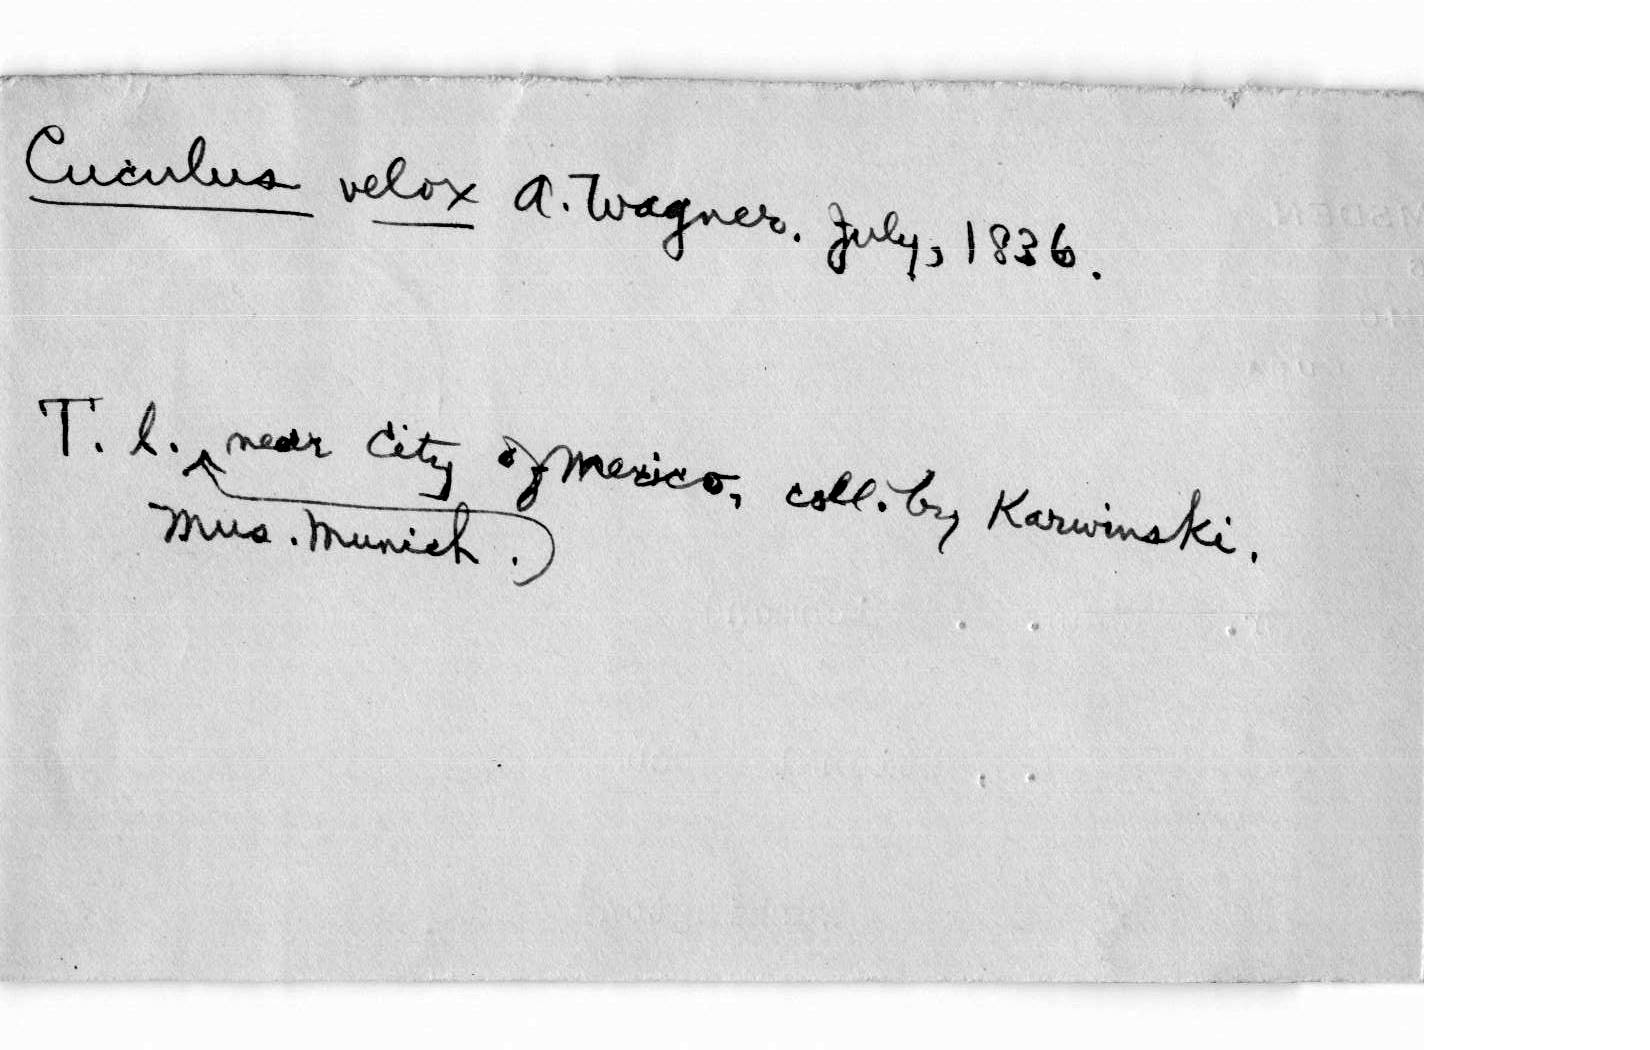 Cuculus velox A. Wagner. July, 1836.
T. l. near City of Mexico, coll. by Karwinski.
Mus. Munich.)